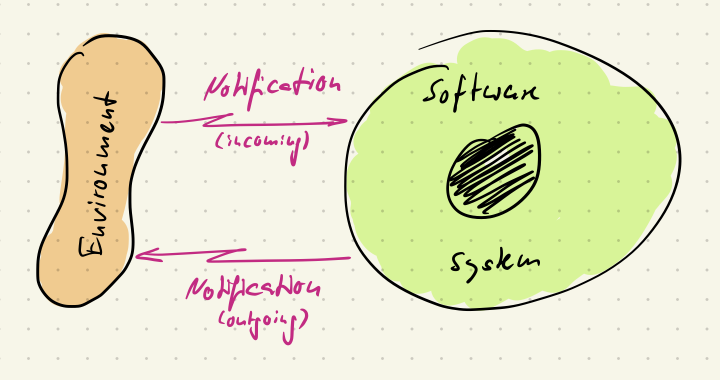 Environment
Notification
(incoming)
Software
System
Notification
(outgoing)